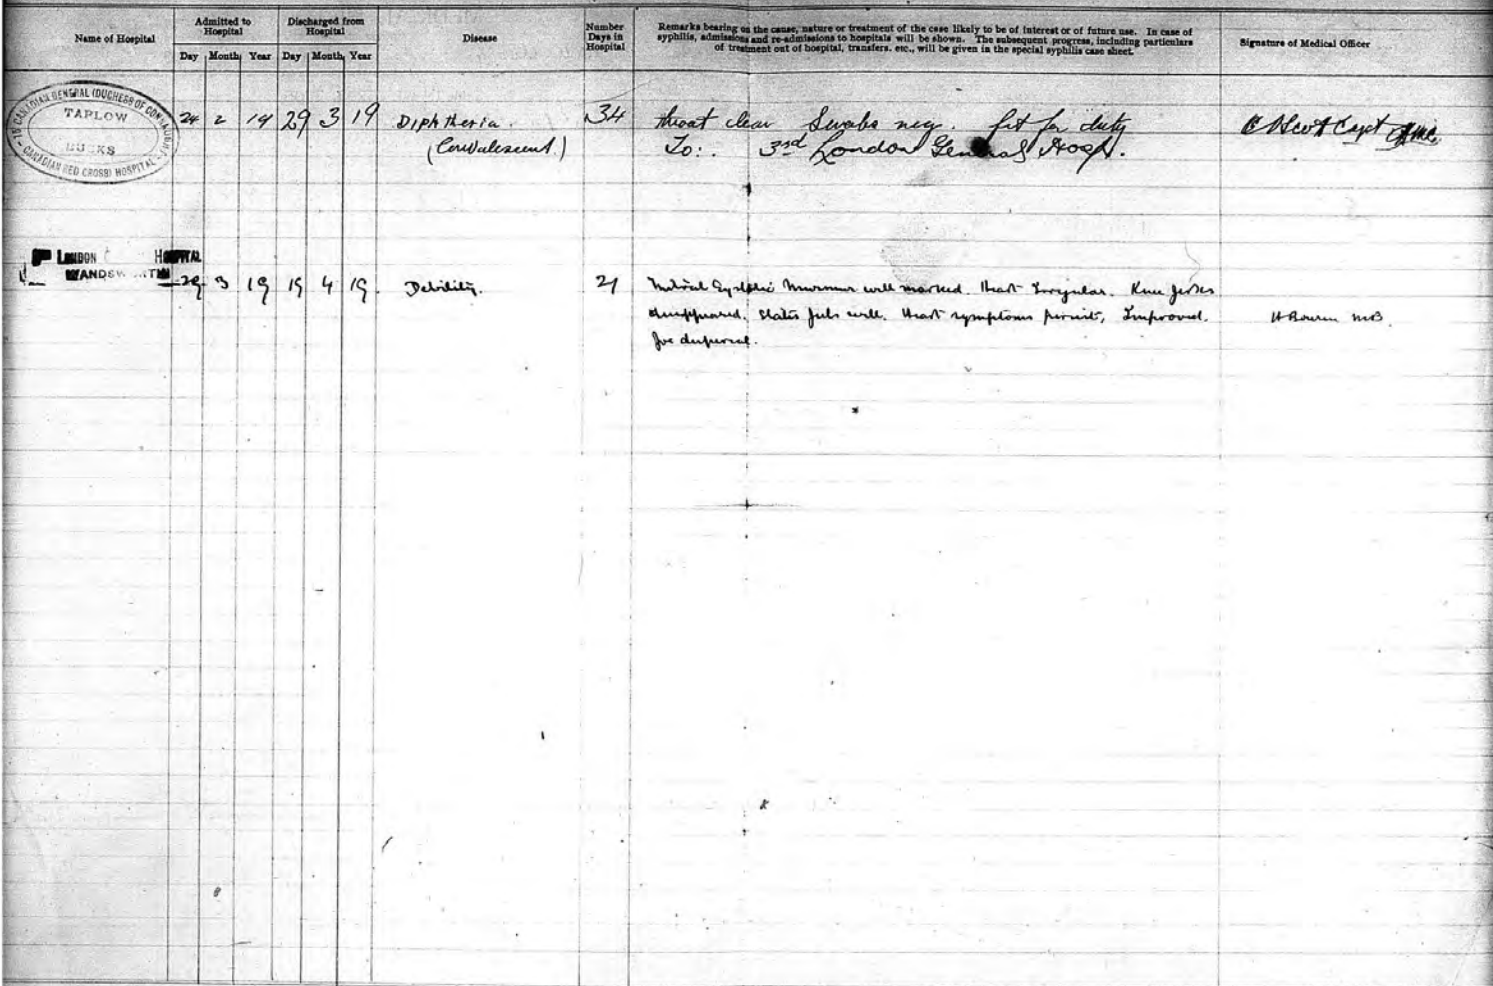 Name of Hospital
Admitted to
Hospital
Day Month Year
Discharged from
Hospital
Day Month Year
Disease
Number
Days in
Hospital
Remarks bearing on the cause, nature or treatment of the case likely to be of interest or of future use. In case of
syphilis, admissions and re-admissions to hospitals will be shown. The subsequent progress, including particulars
of treatment out of hospital, transfers, etc., will be given in the special syphilis case sheet.
Signature of Medical Officer
CANADIAN GENERAL (DUCHESS OF CONNAUGHT)
TAPLOW
BUCKS
CANADIAN RED CROSS) HOSPITAL
24 2 19 29 3 19 Diphtheria. 34 throat clear Swabs neg. fit for duty
(Convalescent.) To:. 3rd London General Hosp.
Scott Capt
LONDON HOSPITAL
WANDSWORTH
29 3 19 19 4 19. Debility. 21 Mitral Systolic Murmur well marked. Heart Irregular. Knee jerks
disappeared. States feels well. Heart symptoms persist, Improved.
For dispersal.
H Bowen M.B.